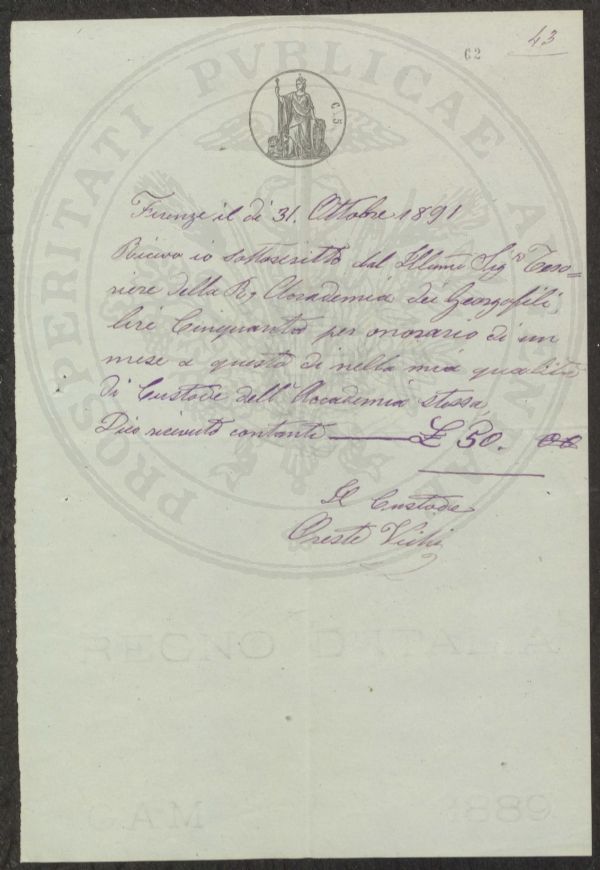 43
62
PROSPERITATI PVBLICAE AVGENDAE
C. 5
Firenze il di 31. Ottobre 1891
Ricevo io sottoscritto dal Illmo Sigr Teso=
riere della R. Accademia dei Georgofili,
lire Cinquanta per onorario di un
mese a questo di nella mia qualità
di Custode dell' Accademia stessa
Dico ricevuto contanti — £ 50. 00
Il Custode
Oreste Vichi
REGNO D'ITALIA